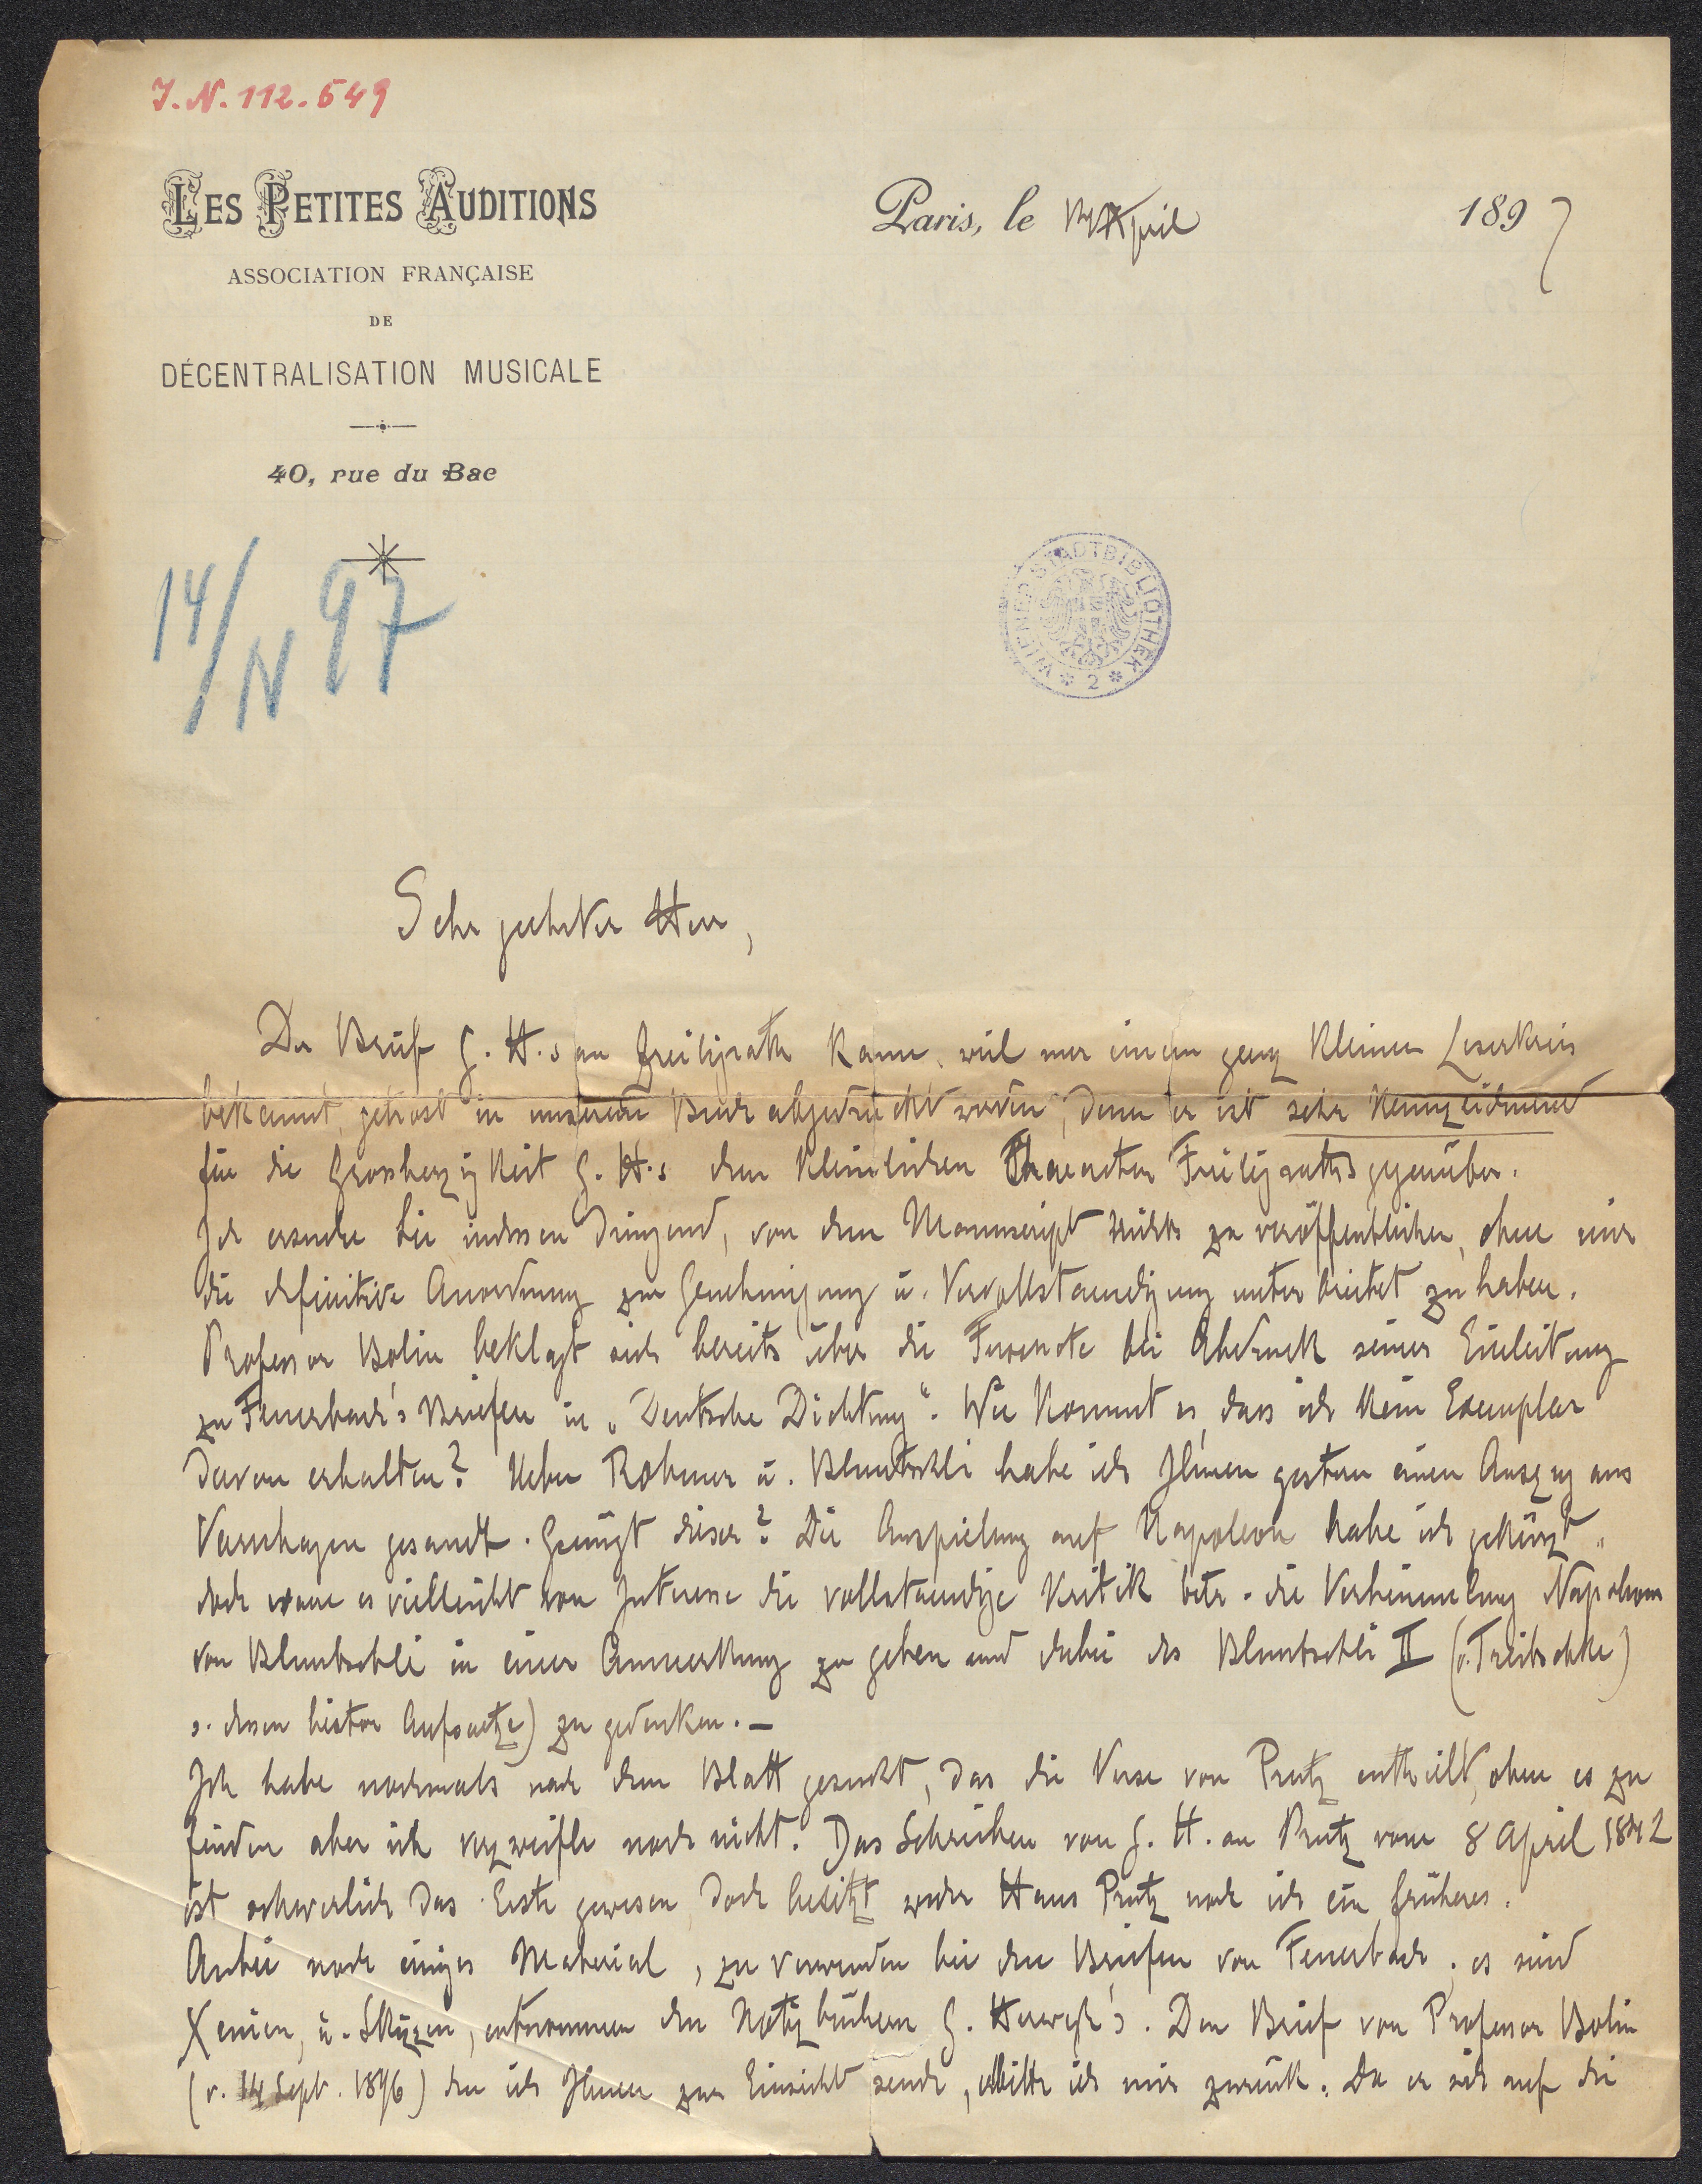 I.N. 112.549
LES PETITES AUDITIONS
ASSOCIATION FRANÇAISE
DE
DÉCENTRALISATION MUSICALE
40, rue du Bac
Paris, le April 1897
14/IV 97
WIENER STADTBIBLIOTHEK * 2 *
Sehr geehrter Herr,
Der Brief G. H.s an Freiligrath kann, weil nur einem ganz kleinen Leserkreis
bekannt, getrost in unserem Buch abgedruckt werden, denn er ist sehr kennzeichnend
für die Grossherzigkeit G. H.s dem kleinlichen Character Freiligraths gegenüber.
Ich ersuche Sie indessen dringend, von dem Manuscript nichts zu veröffentlichen, ohne mir
die definitive Anordnung zur Genehmigung u. Vervollstaendigung unterbreitet zu haben.
Professor Bolin beklagt sich bereits über die Fussnote bei Abdruck seiner Einleitung
zu Feuerbach's Briefen in „Deutsche Dichtung“. Wie kommt es, dass ich kein Exemplar
davon erhalten? Ueber Rohmer u. Bluntschli habe ich Ihnen gestern einen Auszug aus
Varnhagen gesandt. Genügt dieser? Die Anspielung auf Napoleon habe ich gekürzt,
doch waere es vielleicht von Interesse die vollstaendige Kritik betr. die Verhimmelung Napoleons
von Bluntschli in einer Anmerkung zu geben und dabei des Bluntschli II (v. Treitschke)
s. dessen histor Aufsaetze) zu gedenken. –
Ich habe nochmals nach dem Blatt gesucht, das die Verse von Prutz enthielt, ohne es zu
finden aber ich verzweifle noch nicht. Das Schreiben von G. H. an Prutz vom 8 April 1842
ist schwerlich das Erste gewesen, doch besitzt weder Hans Prutz noch ich ein früheres.
Anbei noch einiges Material, zu verwenden bei den Briefen von Feuerbach; es sind
Xenien, u. Skizzen, entnommen den Notizbüchern G. Herwegh's. Den Brief von Professor Bolin
(v. 14 Sept. 1896) den ich Ihnen zur Einsicht sende, erbitte ich mir zurück. Da er sich auf die